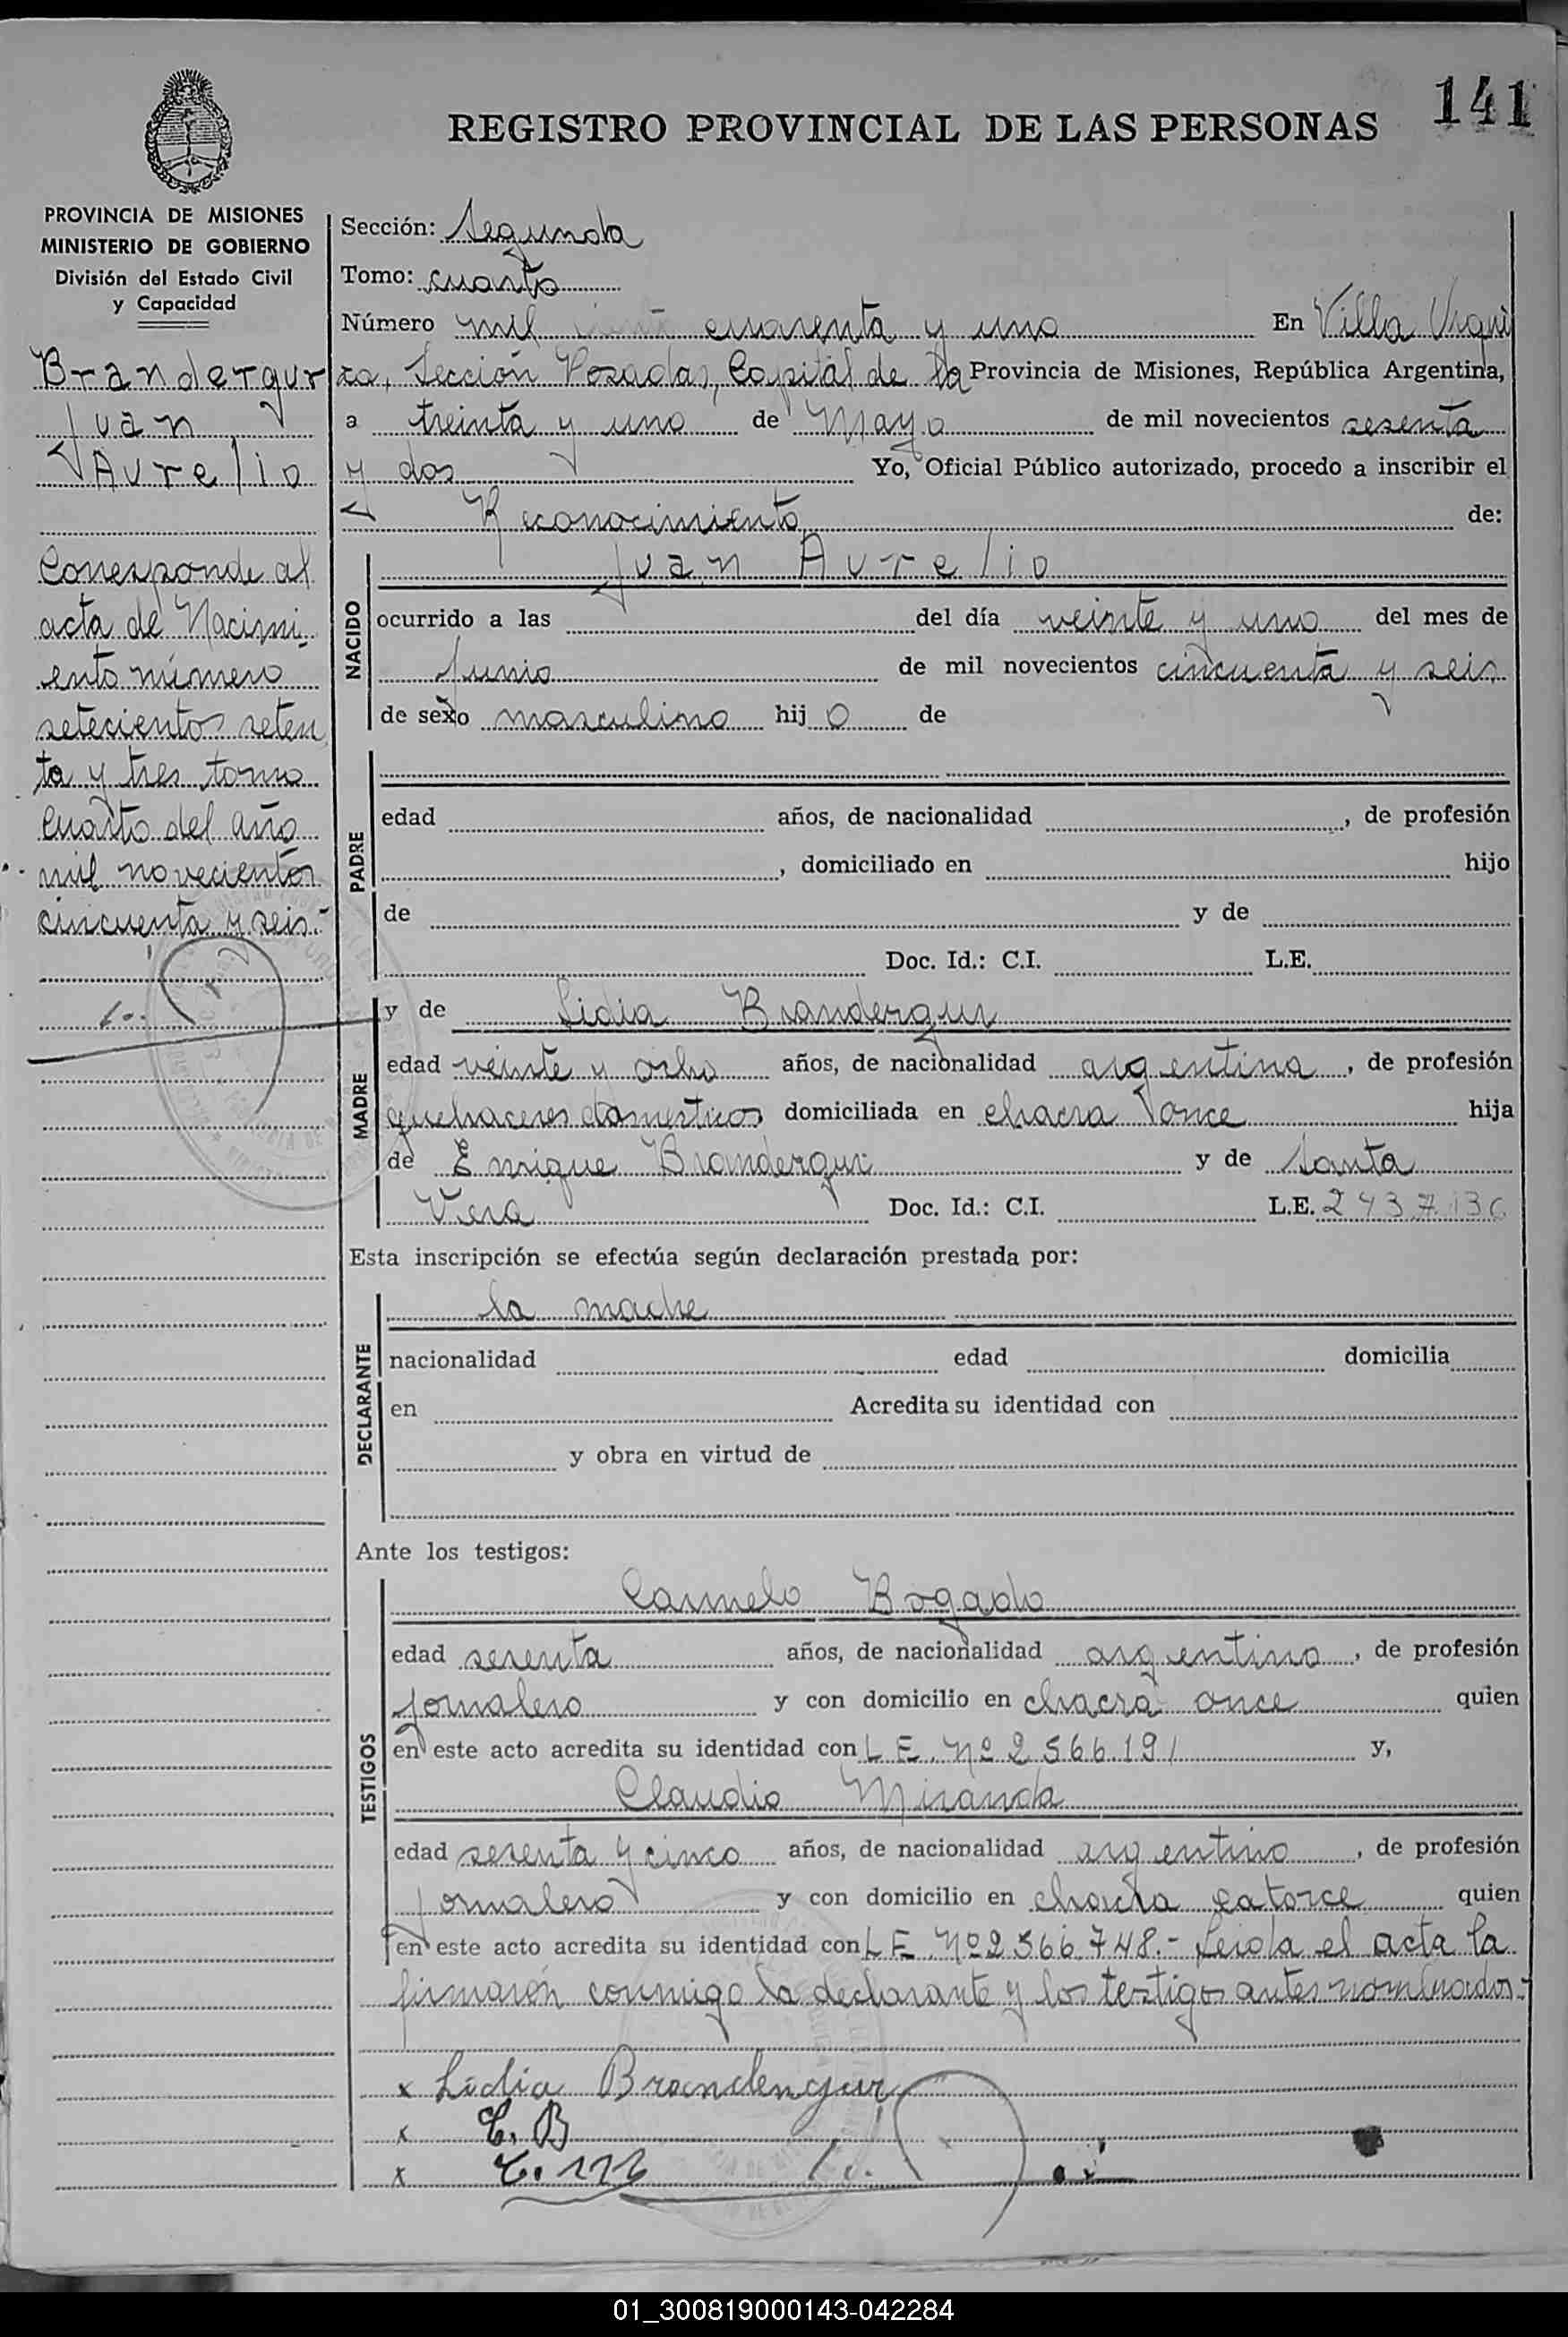 141
REGISTRO PROVINCIAL DE LAS PERSONAS
PROVINCIA DE MISIONES
MINISTERIO DE GOBIERNO
División del Estado Civil
y Capacidad
Brandergur
Juan
Aurelio
Corresponde al
acta de Nacimi
ento número
setecientos seten
ta y tres tomo
cuarto del año
mil novecientos
cincuenta y seis.-
Sección: Segunda
Tomo: cuarto
Número mil cuarenta y uno En Villa Urqui
za, Sección Posadas, Capital de la Provincia de Misiones, República Argentina,
a treinta y uno de Mayo de mil novecientos sesenta
y dos Yo, Oficial Público autorizado, procedo a inscribir el
Reconocimiento de:
NACIDO
Juan Aurelio
ocurrido a las del día veinte y uno del mes de
Junio de mil novecientos cincuenta y seis
de sexo masculino hijo de
PADRE
edad años, de nacionalidad , de profesión
, domiciliado en hijo
de y de
Doc. Id.: C.I. L.E.
MADRE
y de Lidia Brandergur
edad veinte y ocho años, de nacionalidad argentina, de profesión
quehaceres domesticos domiciliada en chacra once hija
de Enrique Brandergur y de Santa
Viera Doc. Id.: C.I. L.E. 2437136
Esta inscripción se efectúa según declaración prestada por:
DECLARANTE
la madre
nacionalidad edad domicilia
en Acredita su identidad con
y obra en virtud de
Ante los testigos:
TESTIGOS
Carmelo Bogado
edad sesenta años, de nacionalidad argentino, de profesión
jornalero y con domicilio en chacra once quien
en este acto acredita su identidad con L E. Nº 2566.191 y,
Claudio Miranda
edad sesenta y cinco años, de nacionalidad argentino, de profesión
jornalero y con domicilio en chacra catorce quien
en este acto acredita su identidad con L E. Nº 2566.748.- Leida el acta la
firmaron conmigo la declarante y los testigos antes nombrados.-
x Lidia Brandengur
x C. B
x
01_300819000143-042284